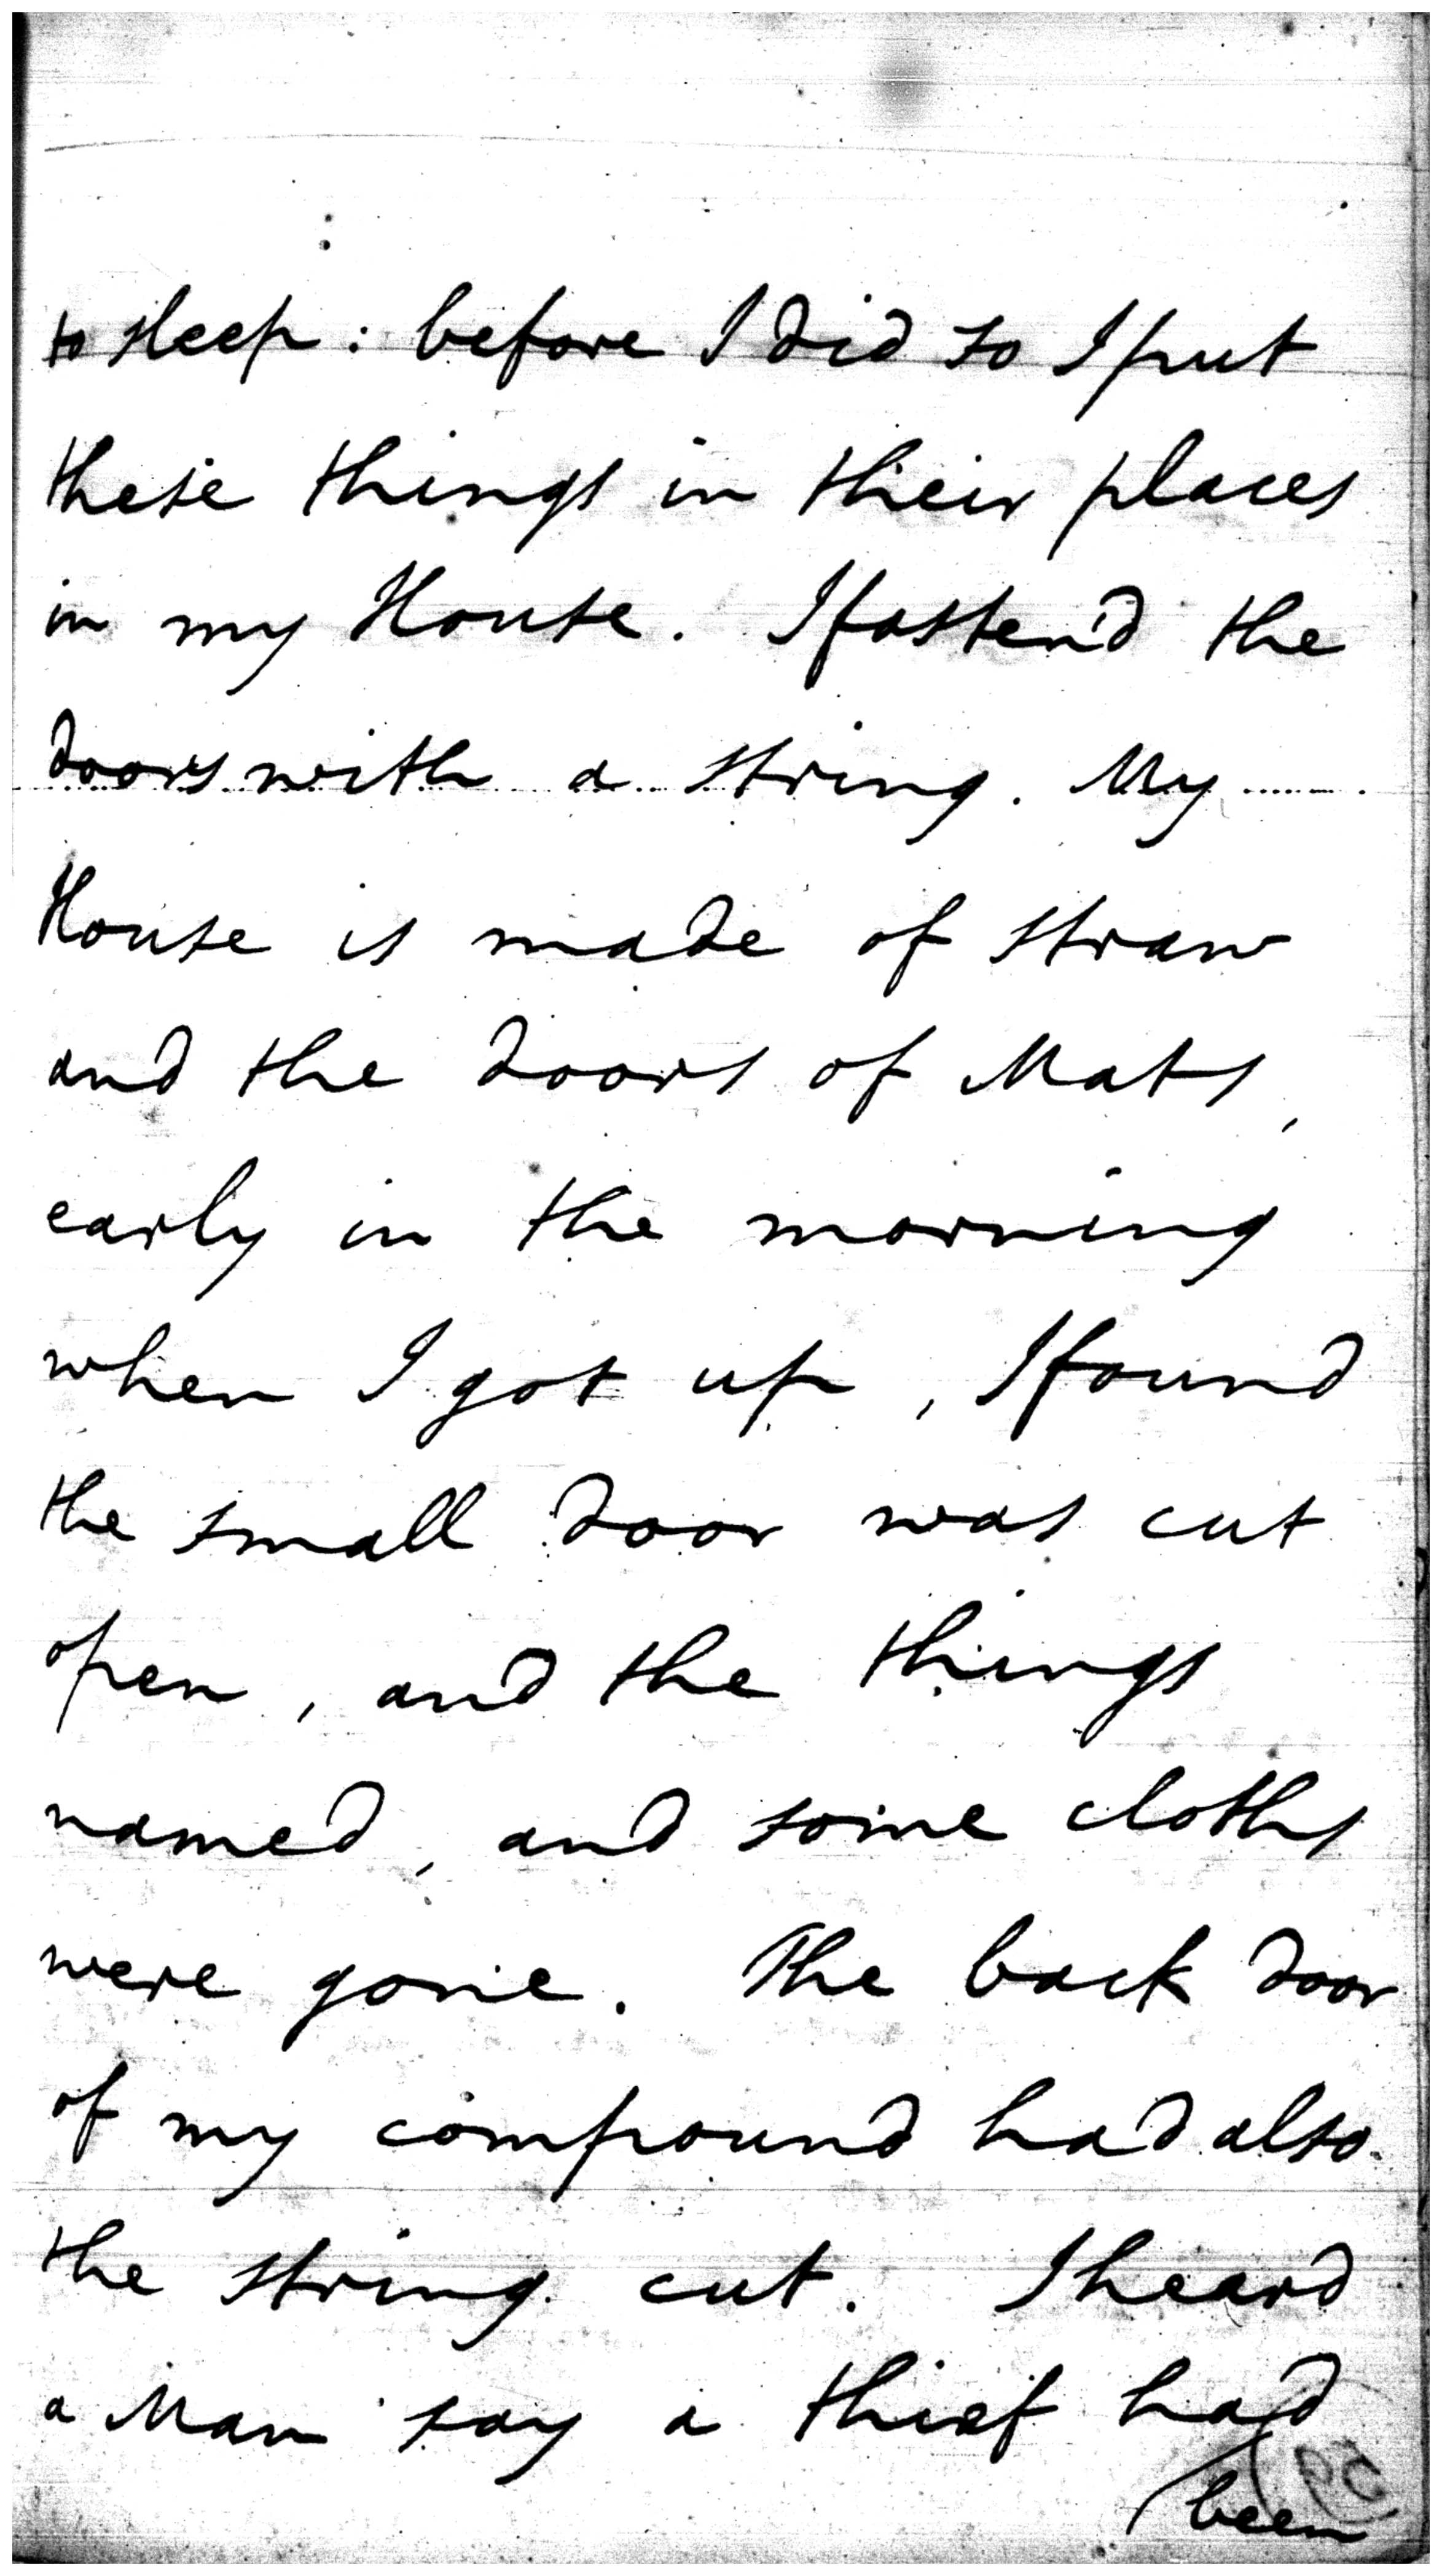 to sleep: before I did so I put
these things in their places
in my House. I fasten'd the
doors with a string. My
House is made of straw
and the doors of Mats,
early in the morning
when I got up, I found
the small door was cut
open, and the things
named, and some cloths
were gone. The back door
of my compound had also
the string cut. I heard
a Man say a thief had
been